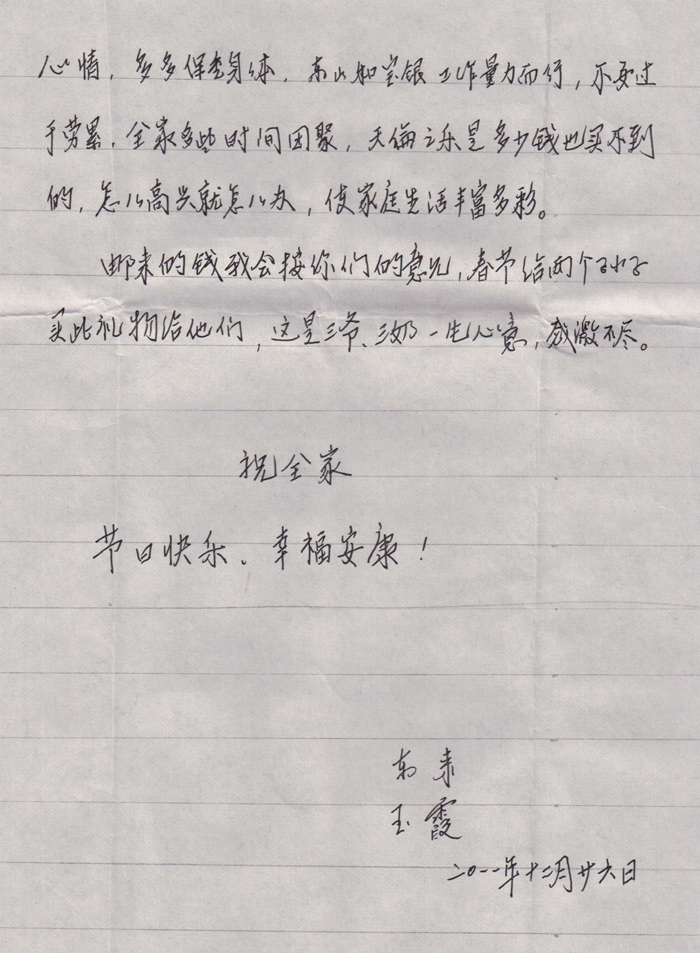 心情，多多保重身体，东山和宝银工作量力而行，不要过
于劳累。全家多些时间团聚，天伦之乐是多少钱也买不到
的，怎么高兴就怎么办，使家庭生活丰富多彩。
邮来的钱我会按你们的意见，春节给两个孙子
买些礼物给他们，这是三爷、三奶一片心意，感激不尽。
祝全家
节日快乐、幸福安康！
东来
玉霞
二〇一一年十二月廿六日